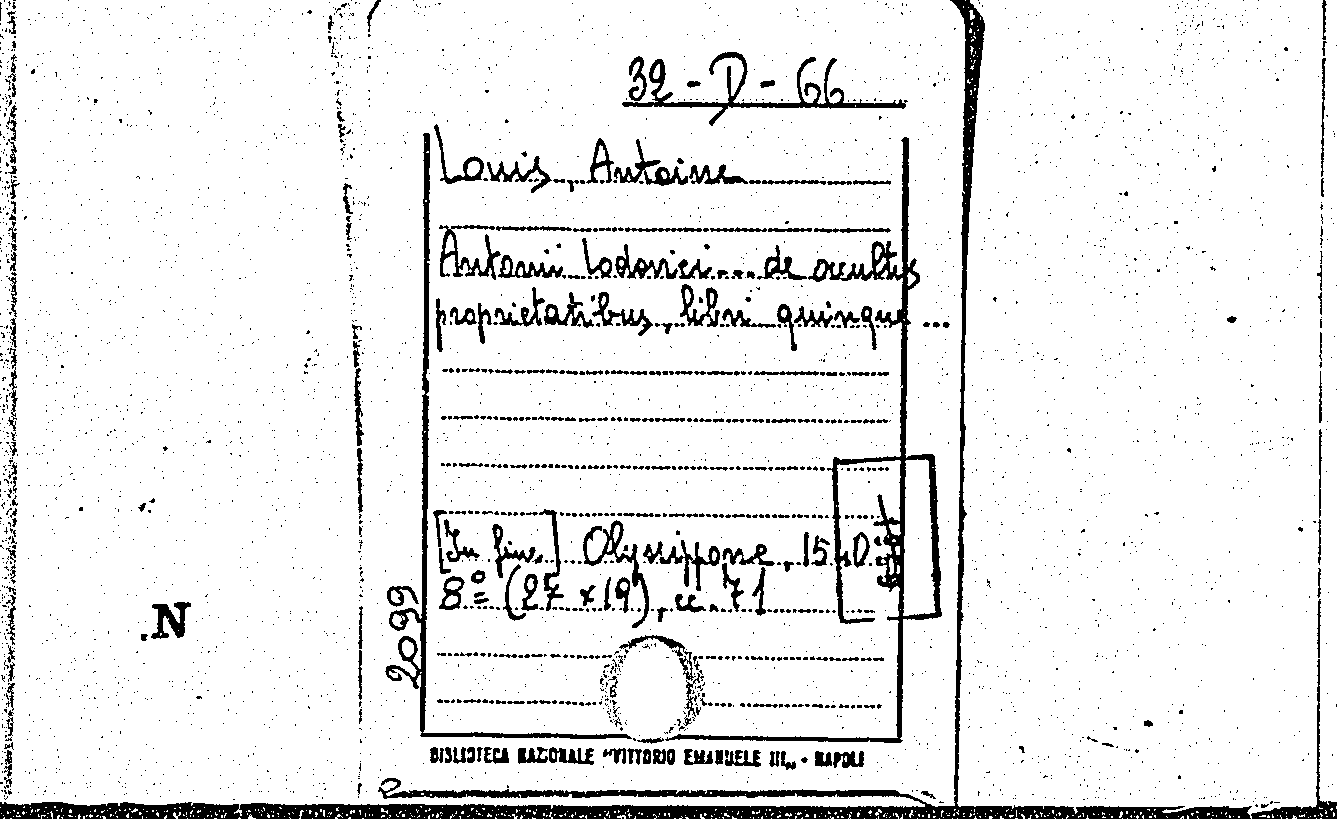 32-D-66
Louis, Antoine
Antonii Lodovici... de occultis
proprietatibus, libri quinque ...
[In fine.] Olyssippone, 1540.
8º (27 x 19), cc. 71
2099
.N
BIBLIOTECA NAZIONALE "VITTORIO EMANUELE III„ - NAPOLI